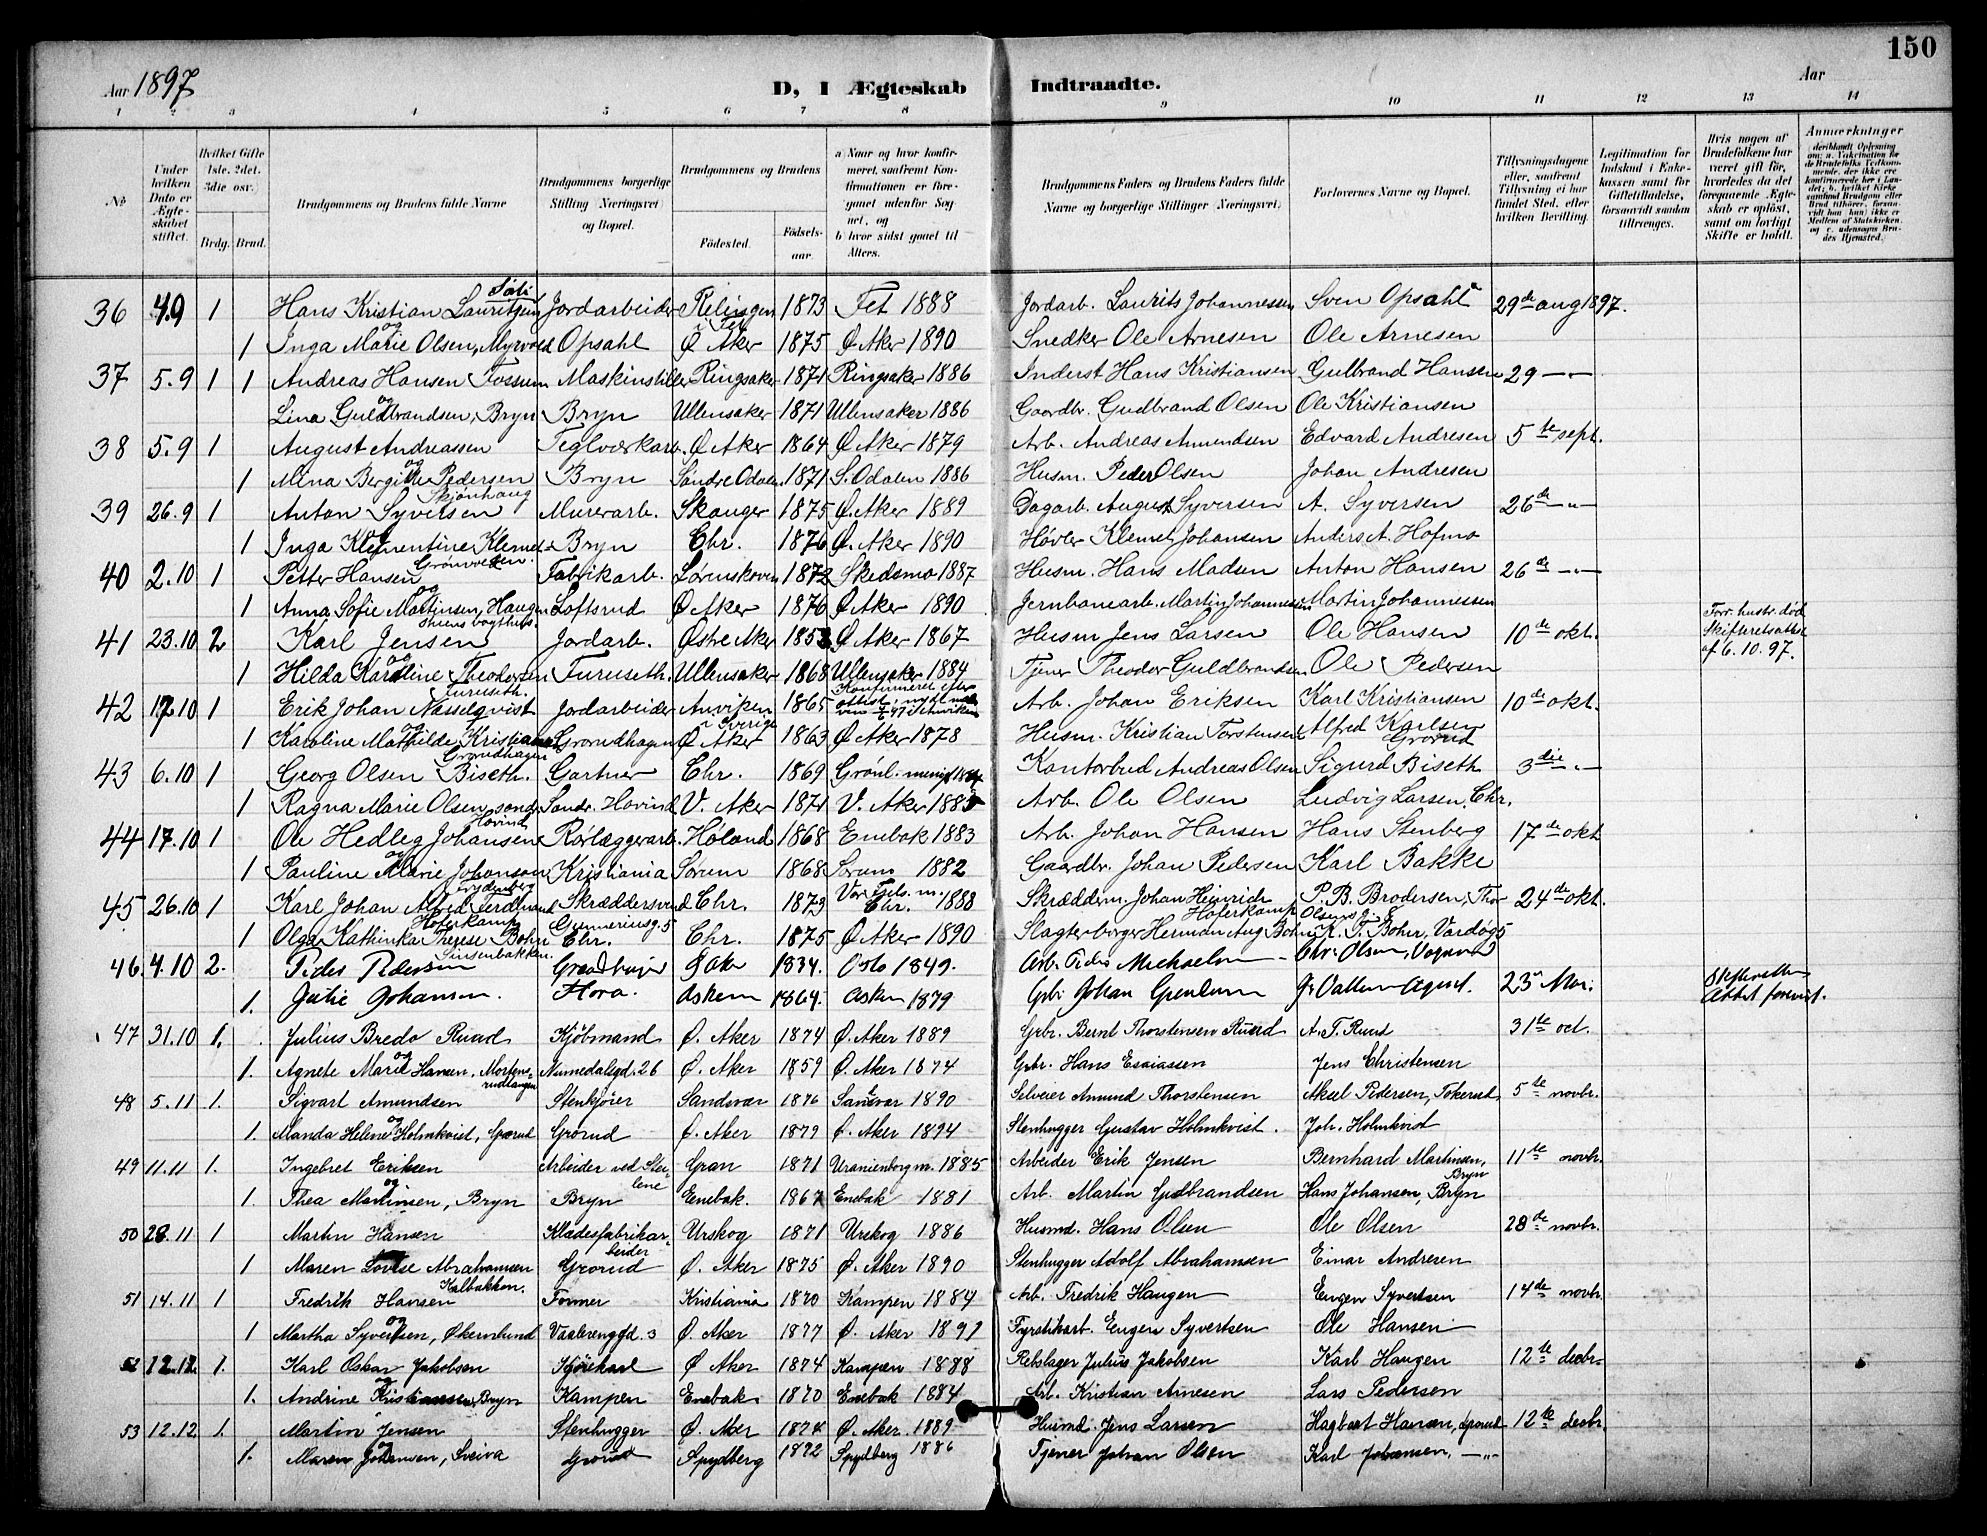 150
Aar 1897
D, I Ægteskab Indtraadte.
Aar
1 2 3 4 5 6 7 8 9 10 11 12 13 14
No
Under hvilken Dato er Ægteskabet stiftet.
Hvilket Gifte 1ste. 2det. 3die osv.)
Brdg. Brud.
Brudgommens og Brudens fulde Navne
Brudgommens borgerlige Stilling (Næringsvei) og Bopæl.
Brudgommens og Brudens
Födested.
Födsels-aar.
a) Naar og hvor konfirmeret, saafremt Konfirmationen er foregaaet udenfor Sognet, og
b) hvor sidst gaaet til Alters.
Brudgommens Faders og Brudens Faders fulde Navne og borgerlige Stillinger (Næringsvei)
Forlovernes Navne og Bopæl.
Tillysningsdagene eller, saafremt Tillysning ei har fundet Sted, efter hvilken Bevilling.
Legitimation for Indskud i Enkekassen samt for Giftetilladelse, forsaavidt saadan tiltrænges.
Hvis nogen af Brudefolkene har været gift för, hvorledes da det foregaaende Ægteskab er oplöst, samt om lovligt Skifte er holdt.
Anmærkninger
36 4.9 1 Hans Kristian Lauritsen Jordarbeider Relingen i Fet 1873 Fet 1888 Jordarb. Laurits Johannessen Sven Opsahl 29de aug 1897.
og
1 Inga Marie Olsen, Myrvold Opsahl Ø Aker 1875 Ø Aker 1890 Snedker Ole Arnesen Ole Arnesen
37 5.9 1 1 Andreas Hansen Fossum Maskinstiller Ringsaker 1871 Ringsaker 1886 Inderst Hans Kristiansen Gulbrand Hansen 29 — "
og
Lina Guldbrandsen, Bryn Bryn Ullensaker 1871 Ullensaker 1886 Gaardbr. Gudbrand Olsen Ole Kristiansen
38 5.9 1 August Andreassen Teglværkarb. Ø Aker 1864 Ø Aker 1879 Arb. Andreas Amundsen Edvard Andresen 5te sept.
og
1 Mina Bergitte Pedersen Bryn Søndre Odalen 1871 S. Odalen 1886 Husm. Peder Olsen Johan Andresen
Skjønhaug
39 26.9 1 Anton Syversen Murerarb. Skauger 1875 Ø. Aker 1889 Dagarb. August Syversen A. Syversen 26de — "
1 Inga Klementine Klemets. Bryn Chr. 1876 Ø. Aker 1890 Høvler Klemet Johansen Anders A. Hofmo
Grønvolden.
40 2.10 1 Petter Hansen Fabrikarb. Lørenskoven 1872 Skedsmo 1887 Husm. Hans Madsen Anton Hansen 26de — "
og
1 Anna Sofie Martinsen, Haugen Loftsrud Ø Aker 1876 Ø Aker 1890 Jernbanearb. Martin Johannessen Martin Johannessen
41 23.10 2 Karl Jensen Jordarb. Østre Aker 1853 Ø Aker 1867 Husm Jens Larsen Ole Hansen 10de okt. Forr. hustr. død Skifteretsattest af 6.10.97.
og
1 Hilda Karoline Theodorsen Furuseth. Ullensaker 1868 Ullensaker 1884 Tjener Theodor Guldbrandsen Ole Pedersen
Furuseth.
42 17.10 1 Erik Johan Nasselqvist Jordarbeider Anviken i Sverige 1865 Konfirmeret efter Arb. Johan Eriksen Karl Kristiansen 10de okt.
og
1 Karoline Mathilde Kristiansen Grorudhagen Ø Aker 1863 Ø Aker 1878 Husm. Kristian Torstensen Alfred Karlsen Grorud
Grorudhagen
43 6.10 1 Georg Olsen Biseth. Gartner Chr. 1869 Grønl. menigh Kontorbud Andreas Olsen Sigurd Biseth 3die — "
1 Ragna Marie Olsen, søndr. Søndr. Hovind V. Aker 1871 V. Aker 1885 Arb. Ole Olsen Ludvig Larsen, Chr.
Hovind
44 17.10 1 Ole Hedleg Johansen Rørlæggerarb. Høland 1868 Enebak 1883 Arb. Johan Hansen Hans Stenberg 17de okt
og
1 Pauline Marie Johansen Kristiania Sørum 1868 Sørum 1882 Gaardbr. Johan Pedersen Karl Bakke
Frydenberg
45 26.10 1 Karl Johan Alfred Ferdinand Hoferkamp Skræddersvend Gunneriusg. 5 Chr. 1873 Vor Frels. m. Chr. 1888 Skrædderm. Johan Heinrich Hoferkamp P. B. Brodersen, Thor Olsens g. 8 24de okt.
1 Olga Kathinka Therese Bohn Chr. Chr. 1875 Ø Aker 1890 Slagterborger Herman Aug Bohn K. F. Bohn, Vardøg 5
Sinsenbakken.
46. 4.10 2. Peder Pedersen Ø Aker 1834. Oslo 1849. Arb. Peder Michaelsen Chr. Olsen,
1. Julie Johansen. Flora. Askim 1864. Askim 1879 Gbr Johan 23de Mai. Attest forevist.
47 31.10 1. Julius Bredo Ruud Kjöbmand Ø. Aker 1874 Ø. Aker 1889 Grbr. Bernt Thorstensen Ruud A. T. Ruud 31te oct.
og
1. Agnete Marie Hansen, Mortensrudtangen Numedalsgd. 26 Ø. Aker 1859 Ø. Aker 1874 Grbr. Hans Esaiassen Jens Christensen
48 5.11 1. Sigvart Amundsen Stenkjører Sandsvær 1876 Sandsvær 1890 Selveier Amund Thorstensen Aksel Pedersen, Tokerud 5te novbr.
og
1. Manda Helene Holmkvist, Grorud Grorud Ø. Aker 1879 Ø. Aker 1894 Stenhugger Gustav Holmkvist. Joh. Holmkvist
49 11.11 1. Ingebret Eriksen Arbeider ved Stelene Gran 1871 Uranienborg m. 1885 Arbeider Erik Jensen Bernhard Martinsen, Bryn 11te novbr.
og
1. Thea Martinsen, Bryn Bryn Enebak. 1867 Enebak 1881 Arb. Martin Gudbrandsen Hans Johansen, Bryn
50 28.11 1 Martin Hansen Klædesfabrikarbeider Urskog 1871 Urskog 1886 Husmd. Hans Olsen Ole Olsen 28de novbr.
1 Maren Lovise Abrahamsen Grorud Ø. Aker 1875 Ø. Aker 1890 Stenhugger Adolf Abrahamsen Einar Andresen
Kalbakken.
51 14.11 1 Fredrik Hansen Former Kristiania 1870 Kampen 1884 Arb. Fredrik Haugen Eugen Syvertsen 14de novbr.
og
1 Martha Syvertsen, Økernlund Vaalerenggd. 3 Ø. Aker 1877 Ø. Aker 1891 Fyrstikarb. Eugen Syvertsen Ole Hansen
52 12.12. 1. Karl Oskar Jakobsen Kjörekarl Ø Aker 1874 Kampen 1888 Rebslager Julius Jakobsen Karl Haugen 12te decbr.
og
1. Andrine Kristiansen, Bryn Kampen Enebak 1870 Enebak 1884 Arb. Kristian Arnesen Lars Pedersen
53 12.12 1. Martin Jensen Stenhugger Ø. Aker 1874 Ø. Aker. 1889 Husmd. Jens Larsen Hagbart Hansen, Grorud 12te decbr.
og
1. Maren Johansen, Sveiva Grorud Spydberg 1872 Spydberg 1886 Tjener Johan Olsen Karl Johansen, — " —